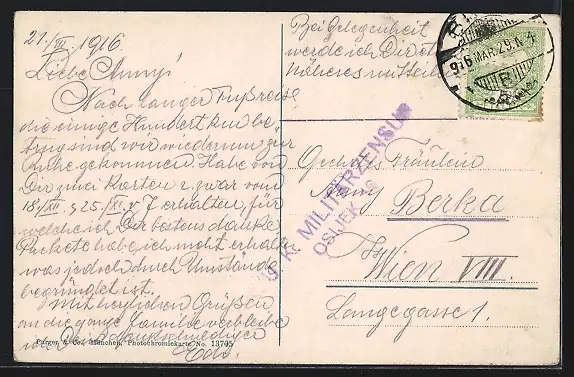 21./III. 1916.
Liebe Anny!
Nach langer Fußreise
die einige Hundert km be-
trug sind wir wiederum zur
Ruhe gekommen. Habe von
Dir zwei Karten u. zwar vom
18./XII. & 25./XI. erhalten, für
welche ich Dir bestens danke
Packete habe ich nicht erhalten
was jedoch durch Umstände
begründet ist.
Mit herzlichen Grüßen
an die ganze Familie verbleibe
ich Dein
Edi.
Purger & Co., München, Photochromiekarte No. 13705
Bei Gelegenheit
werde ich Dir oft
Näheres mitteilen
916 MAR. 29.
K. MILITÄRZENSUR
OSIJEK
Fräulein
Anny Berka
Wien VIII.
Langegasse 1.